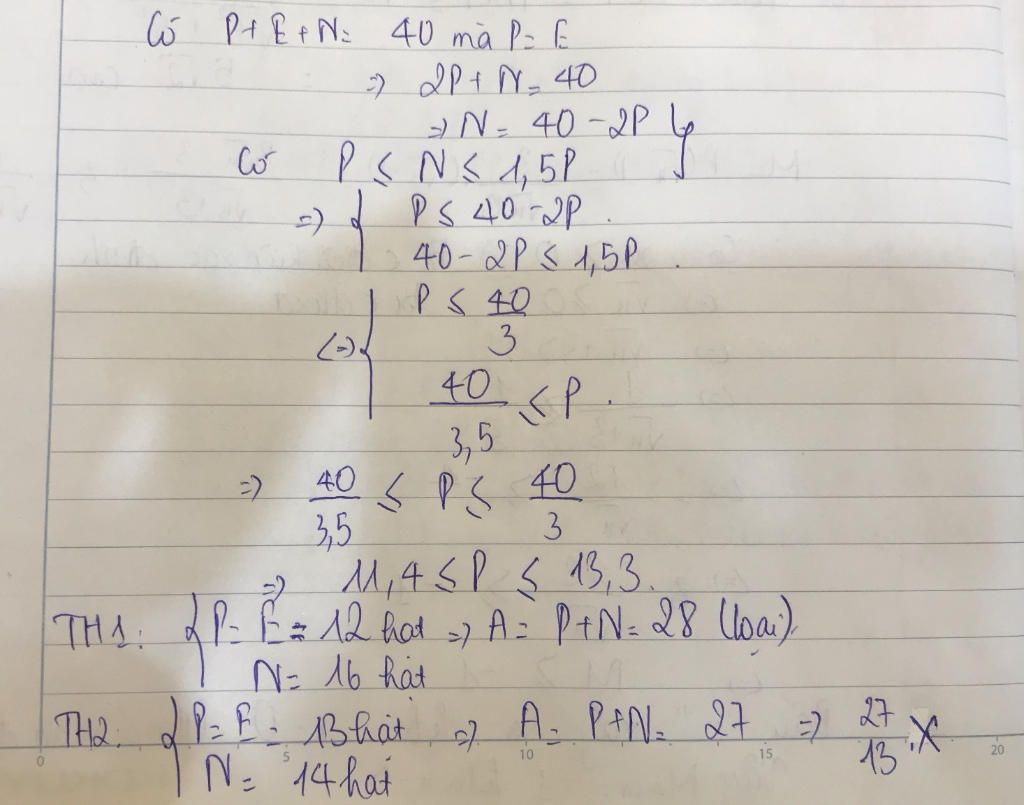 Có P+ E + N = 40 mà P = E
=) 2P + N = 40
=) N = 40 - 2P
Có P ≤ N ≤ 1,5P
=) { P ≤ 40 - 2P .
40 - 2P ≤ 1,5P .
<=> { P ≤ 40/3
40/3,5 ≤ P .
=) 40/3,5 ≤ P ≤ 40/3
=) 11,4 ≤ P ≤ 13,3.
TH1: { P = E = 12 hạt =) A = P+N = 28 (loại).
N = 16 hạt
TH2: { P = E = 13 hạt =) A = P+N = 27 =) 27/13 X
N = 14 hạt
0 5 10 15 20